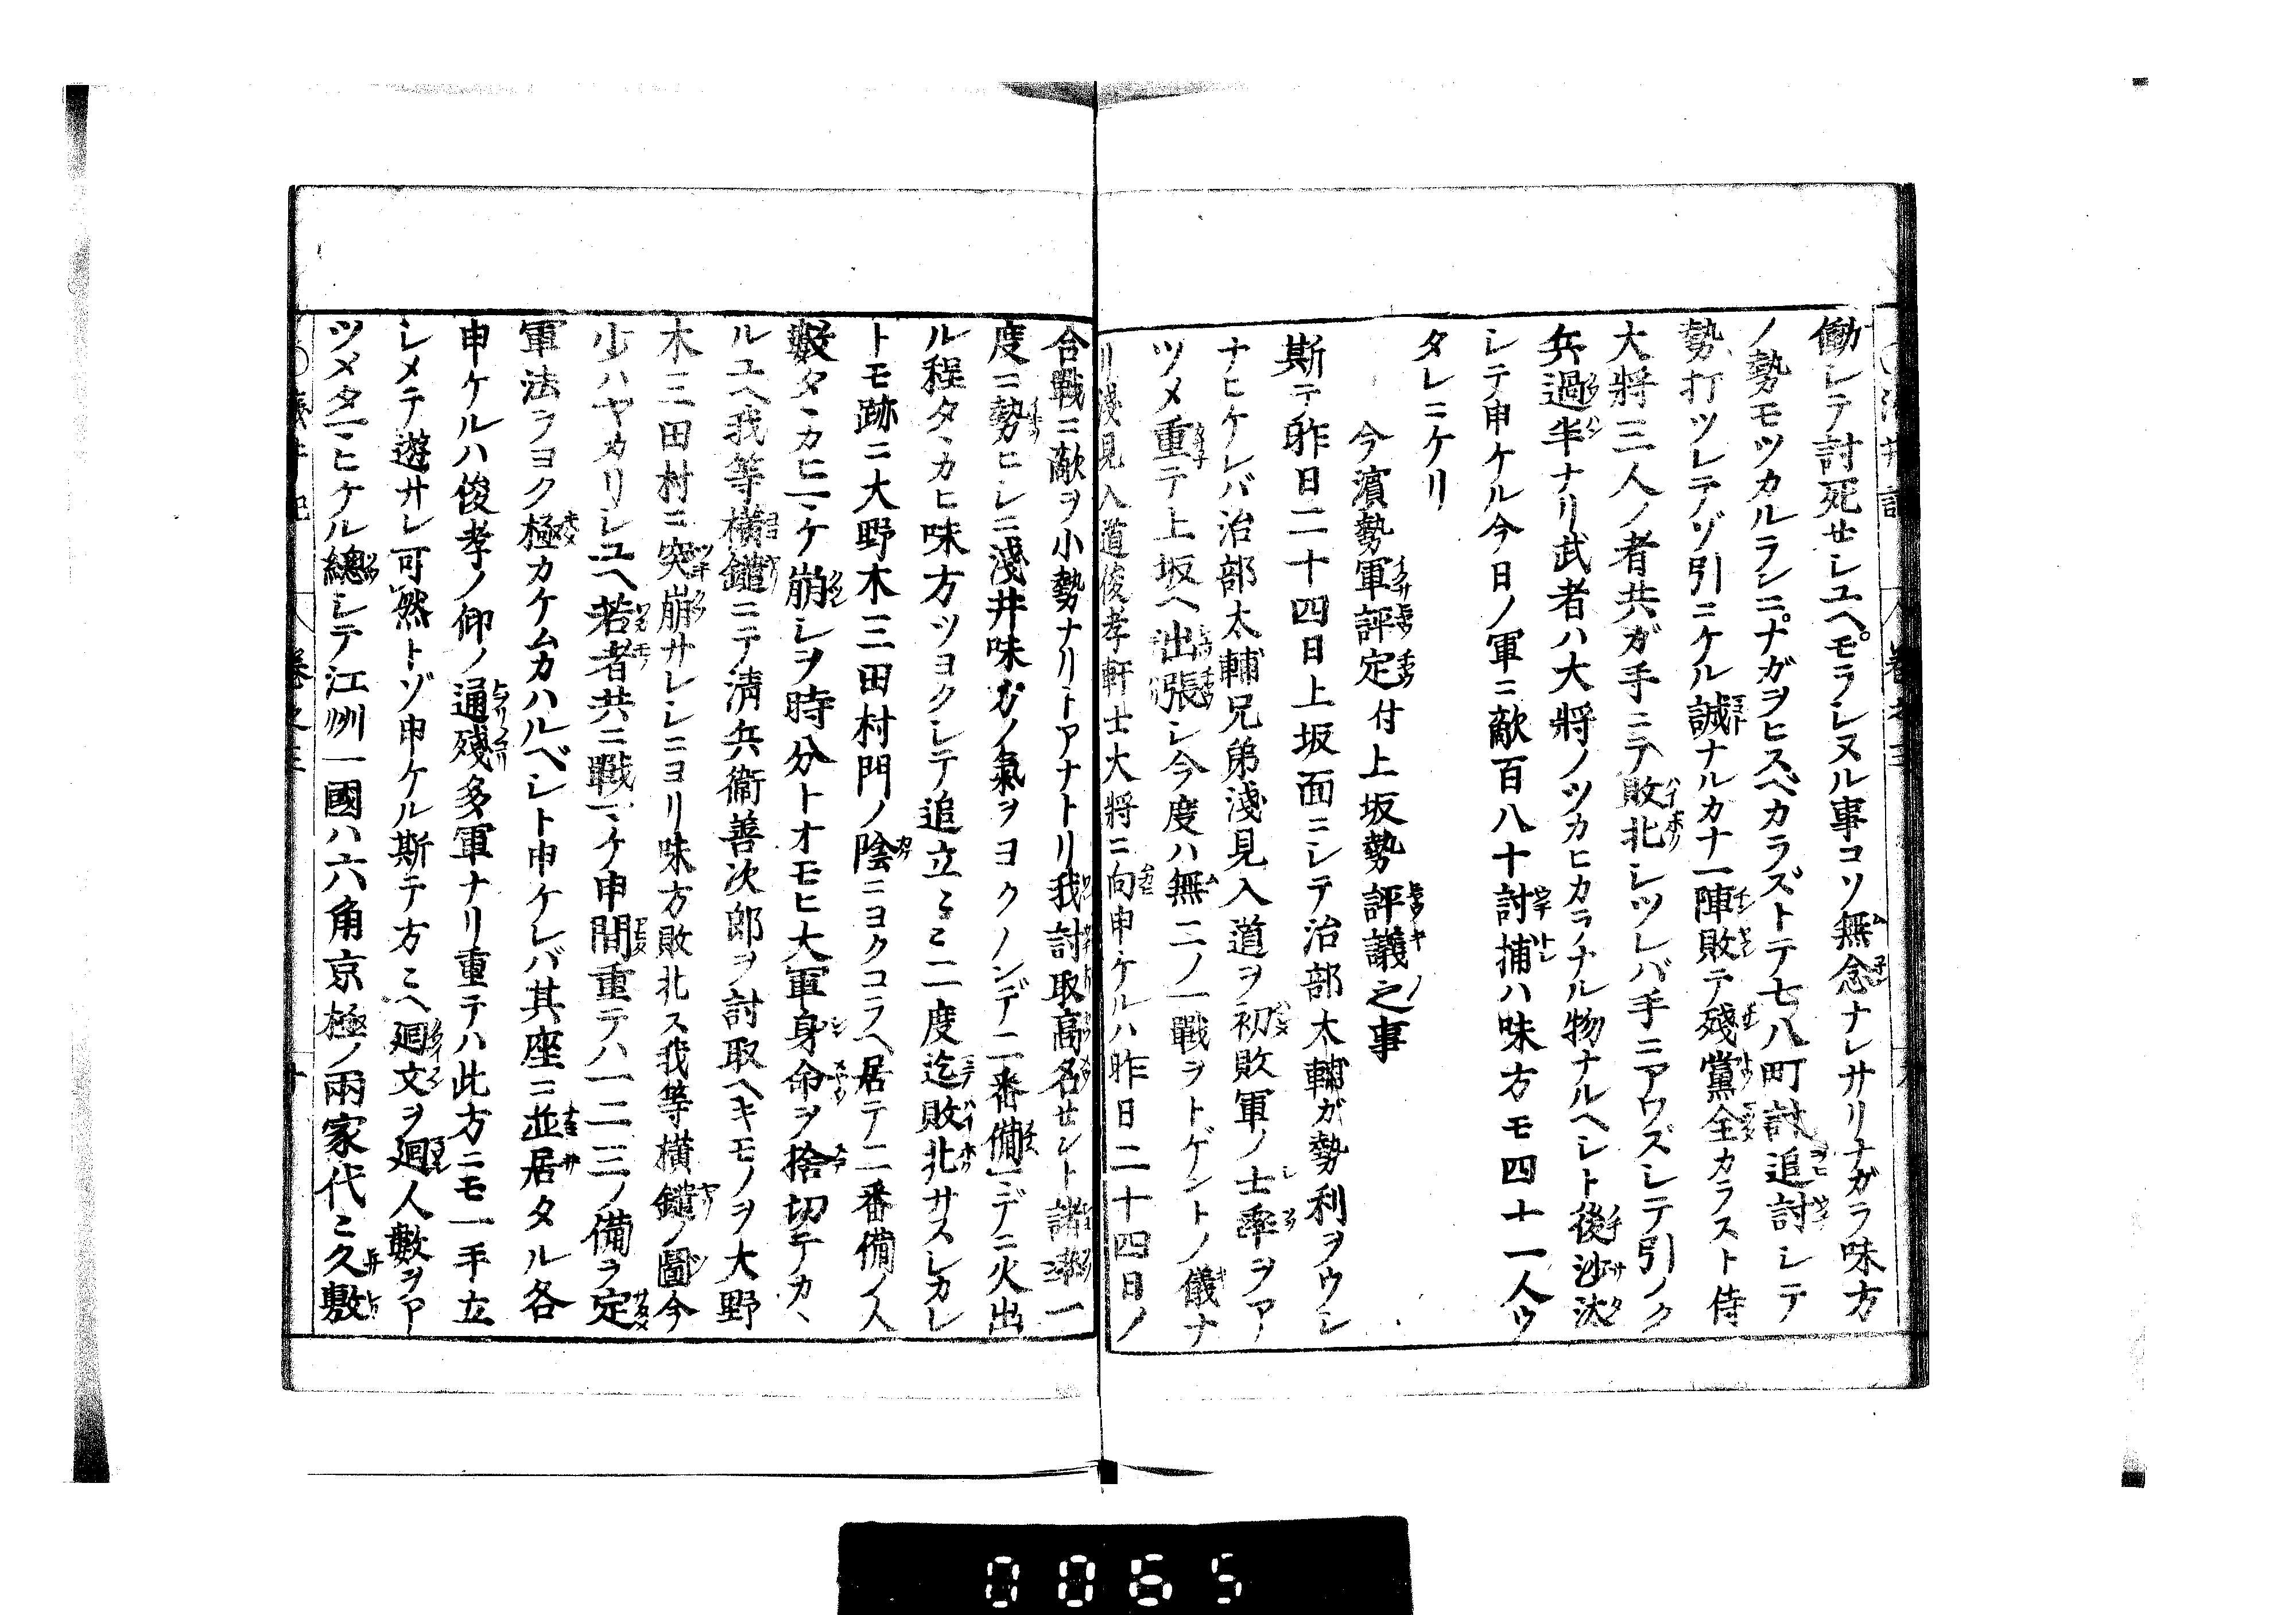 働シテ討死セシユヘモラシヌル事コソ無念ナレサリナガラ味方
ノ勢モツカルランニナガヲヒスベカラズトテ七八町計追討シテ
勢打ツレテゾ引ニケル誠ナルカナ一陣敗テ残黨全カラスト侍
大將三人ノ者共ガ手ニテ敗北シツレバ手ニアワズシテ引ノク
兵過半ナリ武者ハ大將ノツカヒカラナル物ナルヘシト後沙汰
シテ申ケル今日ノ軍ニ敵百八十討捕ハ味方モ四十一人ウ
タレニケリ
今濱勢軍評定付上坂勢評議之事
斯テ昨日二十四日上坂面ニシテ治部太輔ガ勢利ヲウシ
ナヒケレバ治部太輔兄弟淺見入道ヲ初敗軍ノ士卒ヲア
ツメ重テ上坂ヘ出張シ今度ハ無二ノ一戰ヲトゲントノ儀ナ
リ淺見入道俊孝軒士大將ニ向申ケルハ昨日二十四日ノ
合戰ニ敵ヲ小勢ナリトアナトリ我討取高名セント諸卒一
度ニ勢ヒシニ淺井味方ノ氣ヲヨクノンデ二番備ヿデニ火出
ル程タヽカヒ味方ツヨクシテ追立ミミ二度迄敗北サスレカレ
トモ跡ニ大野木三田村門ノ陰ニヨクコラヘ居テ二番備ノ人
數タヽカヒヿケ崩シヲ時分トオモヒ大軍身命ヲ捨切テカヽ
ルユヘ我等横鑓ニテ淸兵衞善次郎ヲ討取ヘキモノヲ大野
木三田村ニ突崩サレシニヨリ味方敗北ス我等横鑓ノ圖今
少ハヤカリシユヘ若者共ニ戰ヿケ申間重テハ一二三ノ備ヲ定
軍法ヲヨク極カケムカハルベシト申ケレバ其座ニ並居タル各
申ケルハ俊孝ノ仰ノ通殘多軍ナリ重テハ此方ニモ一手立
シメテ遊サレ可然トゾ申ケル斯テ方ミヘ廻文ヲ廻人數ヲア
ツメタヿヒケル總シテ江州一國ハ六角京極ノ兩家代ミ久敷